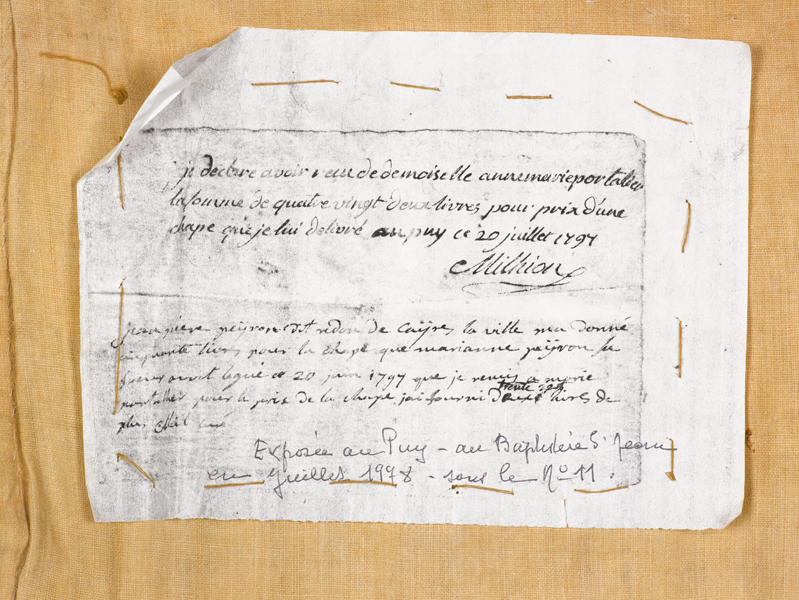 je declare avoir reçu de demoiselle anne marie portalier
la somme de quatre vingt deux livres pour prix d'une
chape que je lui delivré au puy ce 20 juillet 1797
Milhion
jean piere peyron dit redon de cayres la ville ma donné
cinquante livres pour la chape que marianne peyron sa
soeur avoit legué ce 20 juin 1797 que je remis a marie
portalier pour le prix de la chape jai fourni trente deux livres de
plus
Exposée au Puy - au Baptistère St Jean
en Juillet 1978 - sous le No 11.